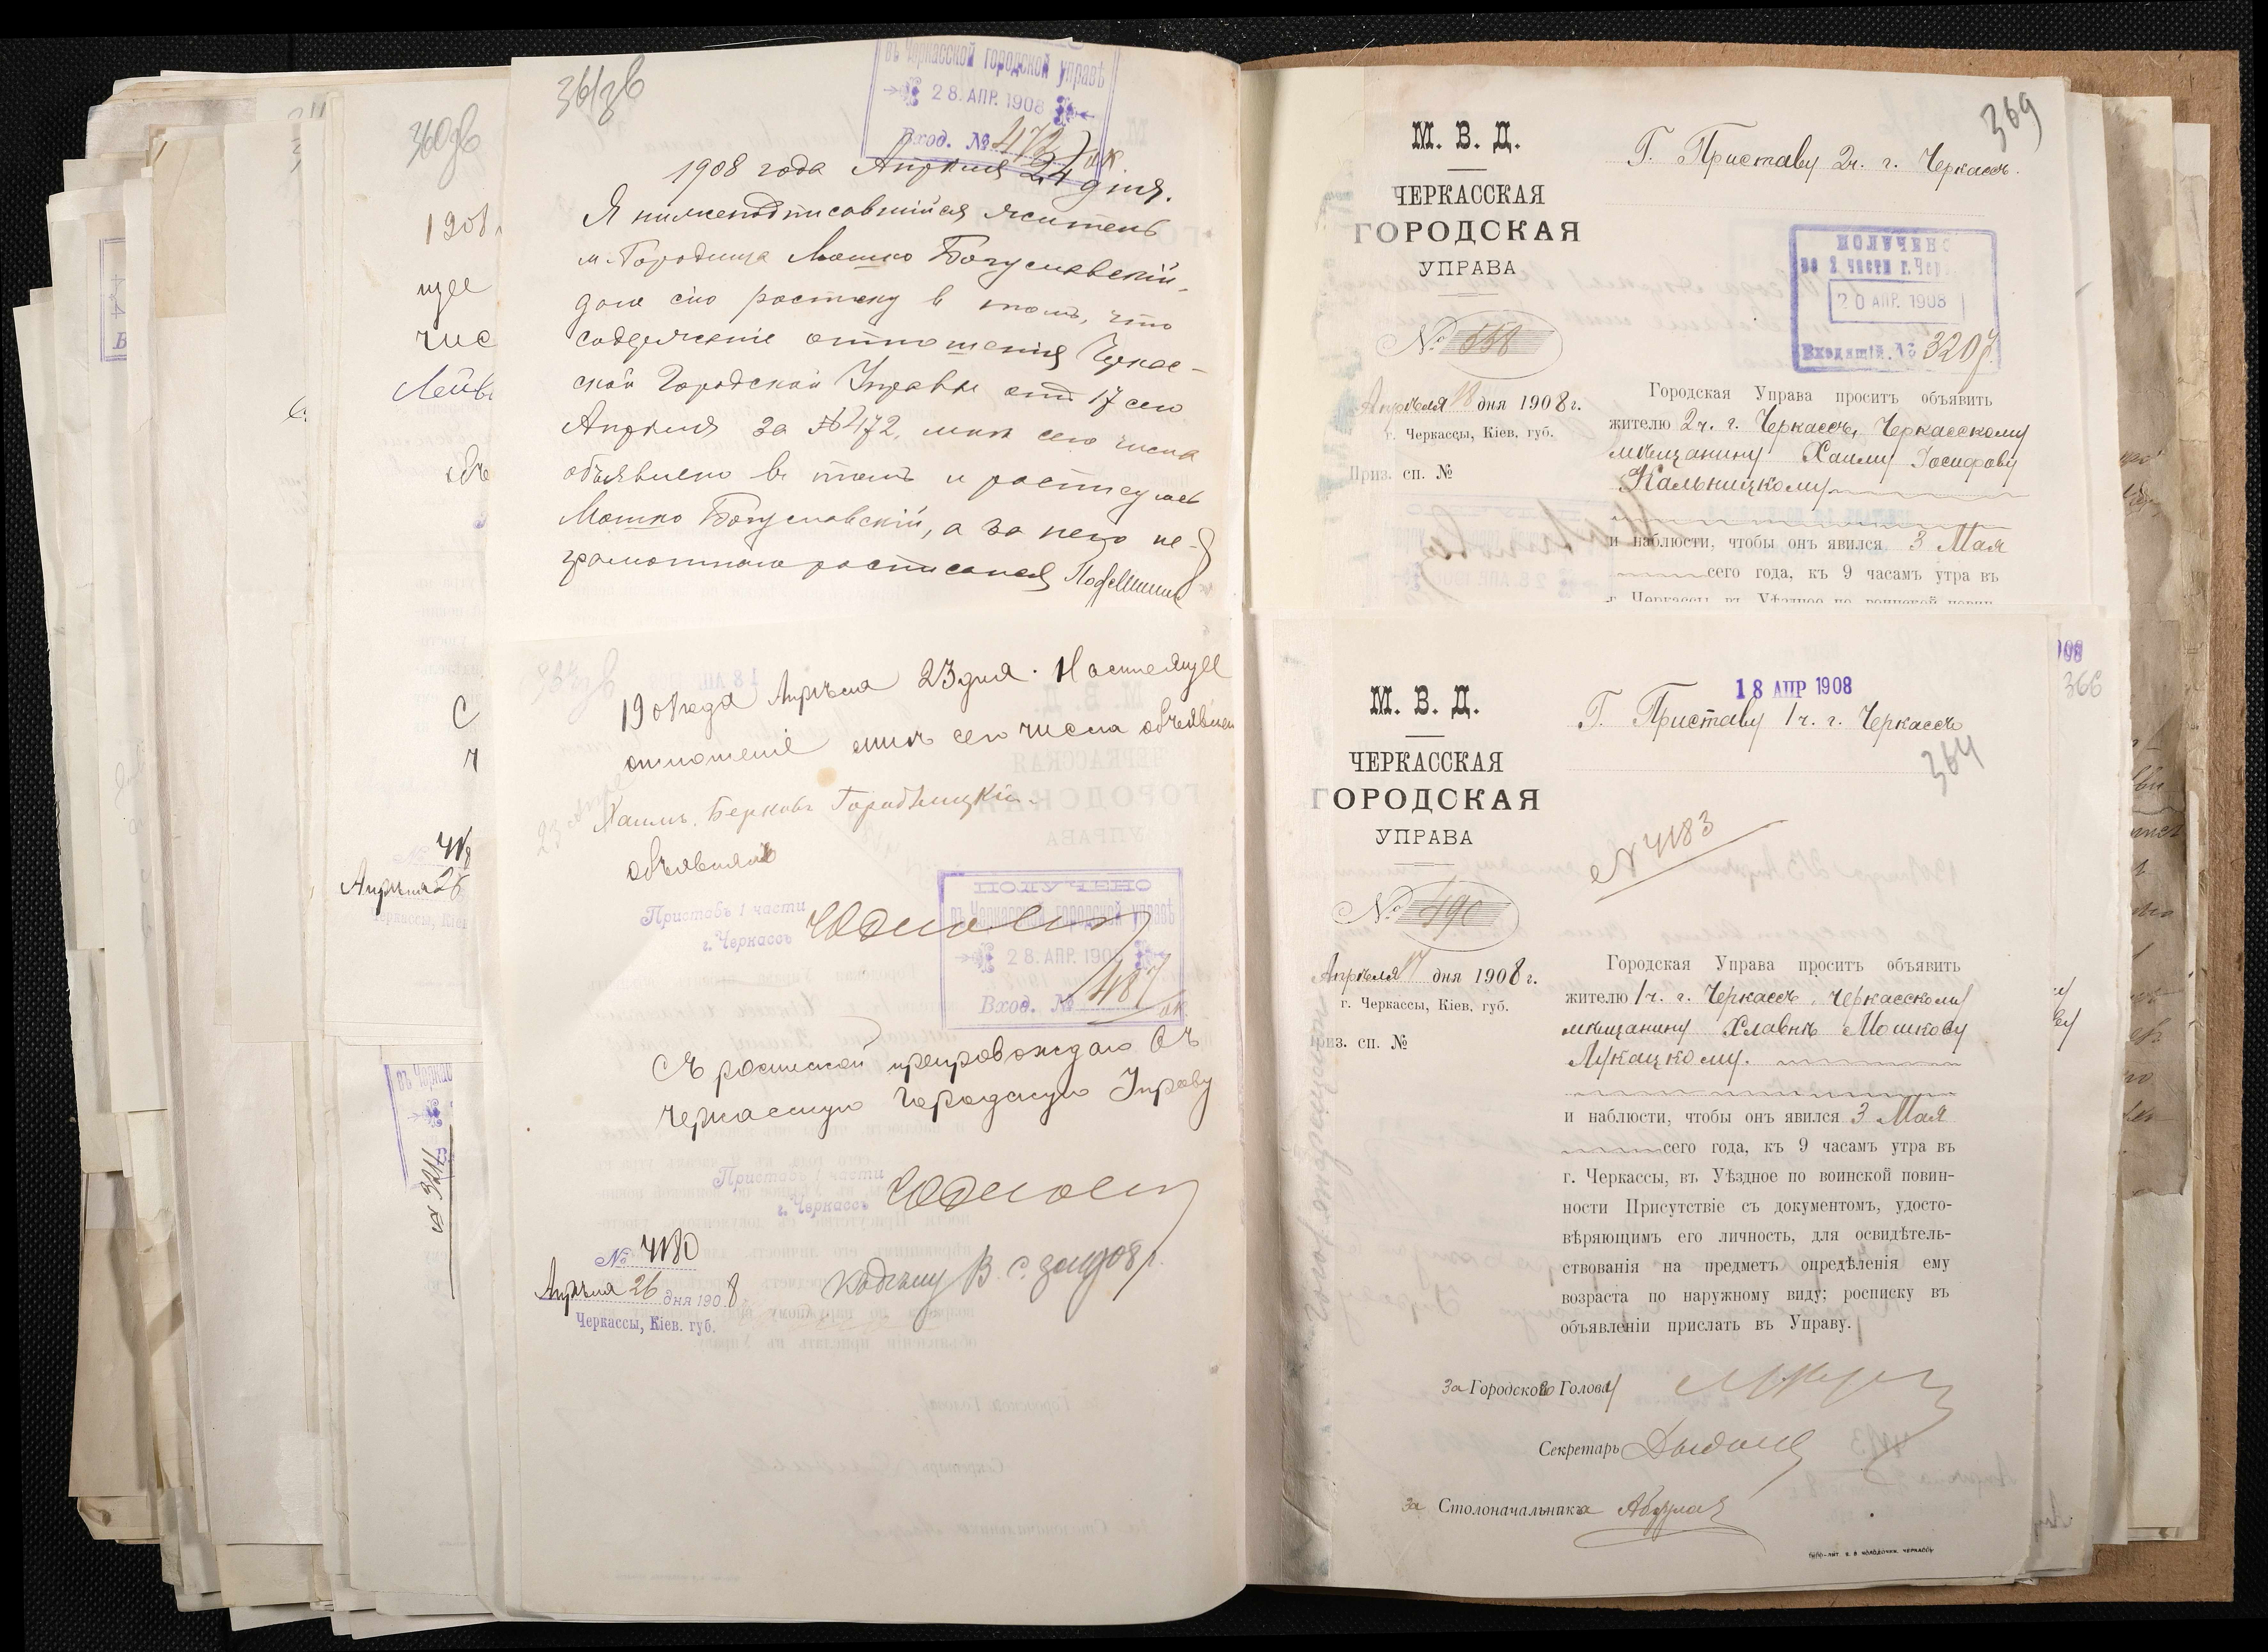 360об
1908
щее
чис
Лейв
объ
С
ч
Апреля 26
Черкассы, Кіев
№ 3211
361об
въ Черкасской городской управѣ
28. АПР. 1908
Вход. № 472
1908 года Апрѣля 24 дня.
Я нижеподписавшійся житель
м. Городища Мошко Богуславскій
даю сію росписку в томъ, что
содержаніе отношенія Черкас-
ской Городской Управы отъ 17 сего
Апрѣля за № 472, мнѣ сего числа
объявлено въ томъ и росписуюсь
Мошко Богуславскій, а за него не-
грамотнаго росписался
1908 года Апрѣля 23 дня. Настоящее
отношеніе мнѣ сего числа объявлен
Хаимъ Берковъ Городыицкій
объявилъ
Приставъ 1 части
г. Черкассъ
ПОЛУЧЕНО
въ Черкасской городской управѣ
28. АПР. 1908
Вход. № 487
Съ роспиской препровождаю Въ
Черкасскую Городскую Управу
Приставъ 1 части
г. Черкассъ
№ 4180
Апрѣля 26 дня 1908
Черкассы, Кіев. губ.
369
М. В. Д.
ЧЕРКАССКАЯ
ГОРОДСКАЯ
УПРАВА
№ 558
Апрѣля 18 дня 1908 г.
г. Черкассы, Кіев. губ.
Приз. сп. №
Г. Приставу 2ч. г. Черкассъ.
ПОЛУЧЕНО
во 2 части г. Чер
20 АПР. 1908
Входящій. № 3207
Городская Управа проситъ объявить
жителю 2ч. г. Черкассъ, Черкасскому
мѣщанину Хаиму Іосифову
Кальницкому
и наблюсти, чтобы онъ явился 3 Мая
сего года, къ 9 часамъ утра въ
г. Черкассы, въ Уѣздное по воинской повин-
М. В. Д.
ЧЕРКАССКАЯ
ГОРОДСКАЯ
УПРАВА
№ 490
Апрѣля 17 дня 1908 г.
г. Черкассы, Кіев. губ.
Приз. сп. №
18 АПР 1908
Г. Приставу 1ч. г. Черкассъ
364
366
№ 4183
Городская Управа проситъ объявить
жителю 1ч. г. Черкассъ, Черкасскому
мѣщанину Хлавнѣ Мошкову
Лукацкому.
и наблюсти, чтобы онъ явился 3 Мая
сего года, къ 9 часамъ утра въ
г. Черкассы, въ Уѣздное по воинской повин-
ности Присутствіе съ документомъ, удосто-
вѣряющимъ его личность, для освидѣтель-
ствованія на предметъ опредѣленія ему
возраста по наружному виду; росписку въ
объявленіи прислать въ Управу.
За Городского Голову
Секретарь
За Столоначальника